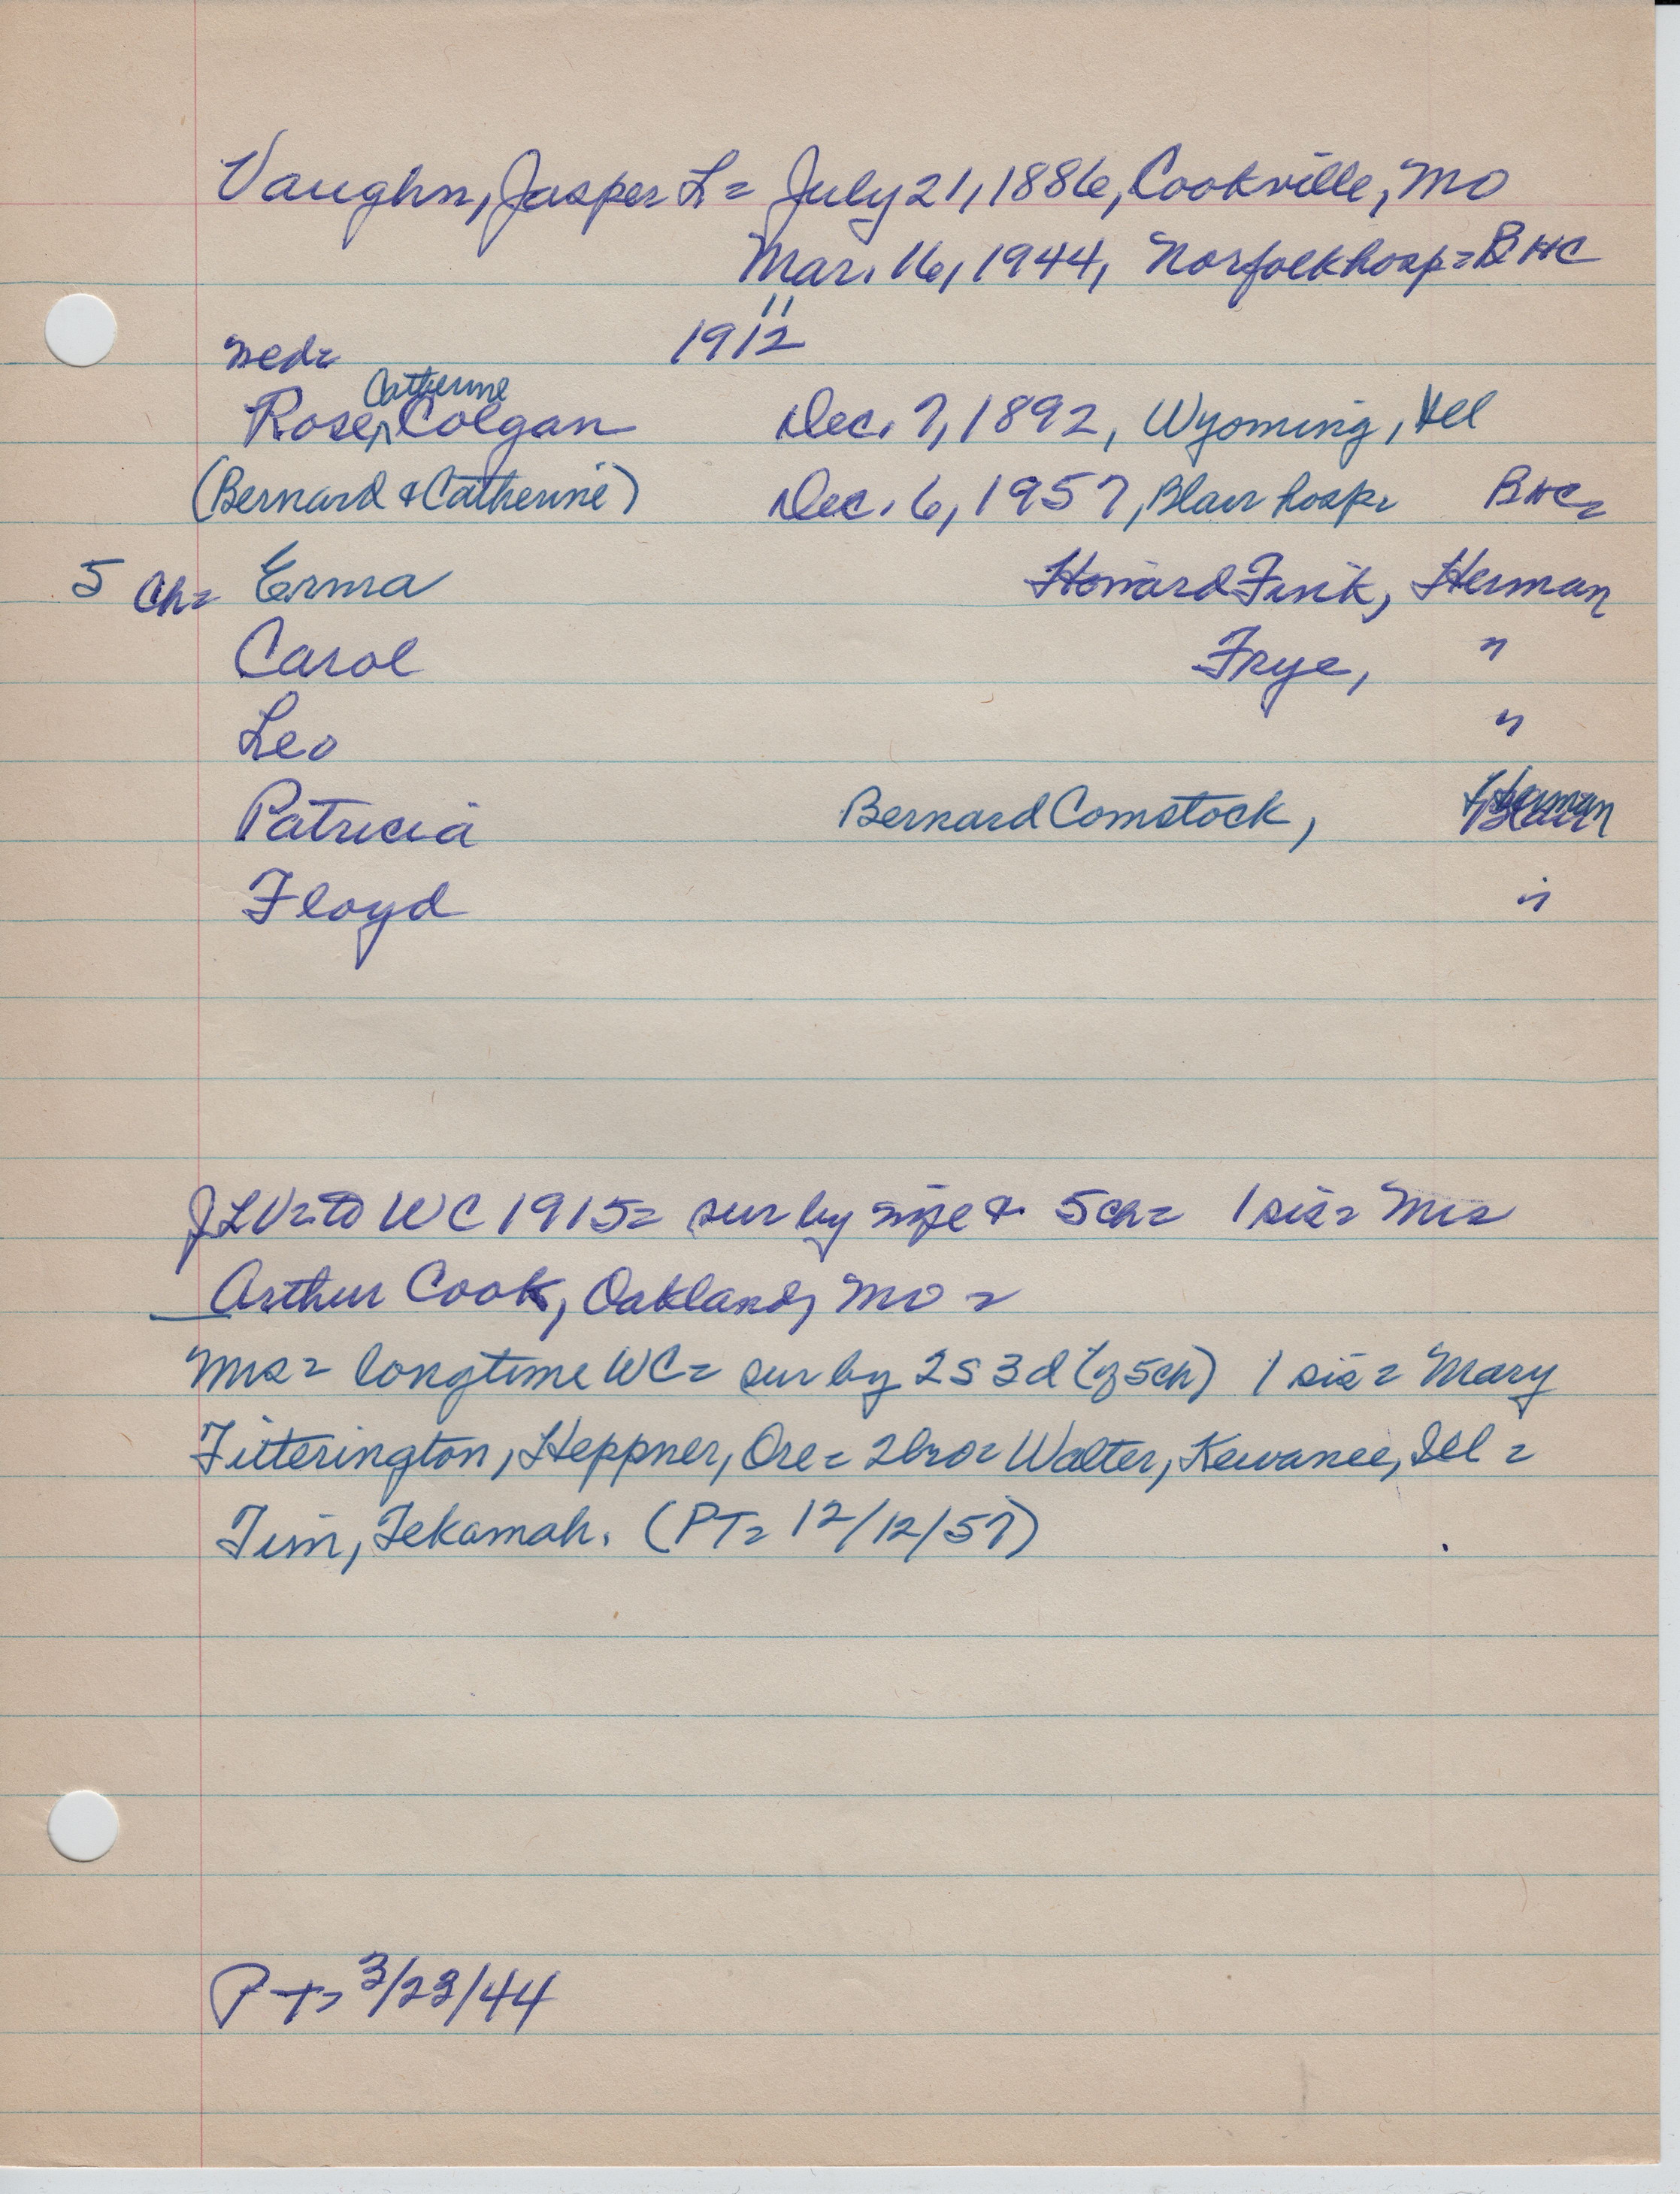 Vaughn, Jasper L= July 21, 1886, Cookville, Mo
Mar. 16, 1944, Norfolk hosp= BHC
"
wed= 1912
Catherine
Rose, Colgan Dec. 7, 1892, Wyoming, Ill
(Bernard & Catherine) Dec. 6, 1957, Blair hosp= BHC=
5 Ch= Erma Howard Fink, Herman
Carol Frye, "
Leo "
Patricia Bernard Comstock, Herman
Floyd "
JLV= to WC 1915= sur by wife & 5 ch= 1 sis= Mrs
Arthur Cook, Oakland, Mo =
Mrs= longtime WC= sur by 2S 3d (of 5ch) 1 sis= Mary
Fitterington, Heppner, Ore= 2bro= Walter, Kewanee, Ill =
Tim, Tekamah. (PT= 12/12/57)
PT= 3/23/44